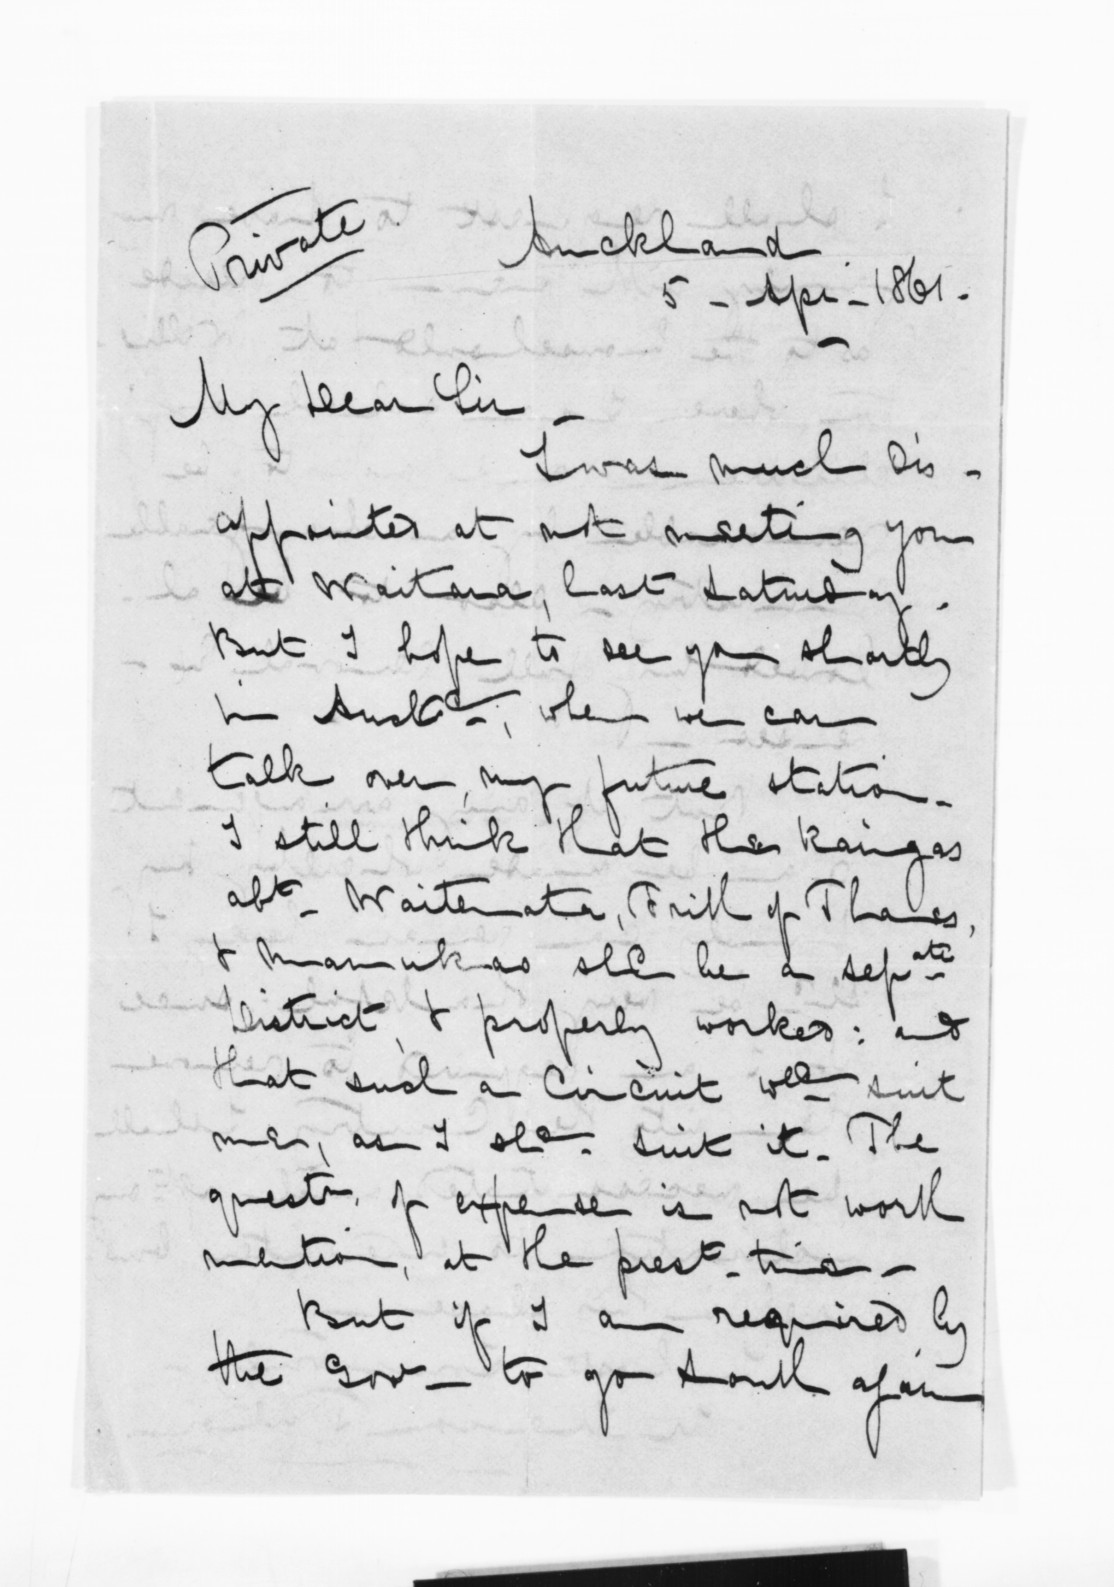 Private
Auckland
5 - Apl - 1861 -
My Dear Sir -
I was much dis -
appointed at not meeting you
at Waitara, last Saturday.
But I hope to see you shortly
in Auckd -, when we can
talk over, my future station -
I still think that the Kaingas
abt - Waitemata, Frith of Thames,
& Manukao shd be a sepate
District, & properly worked: and
that such a Circuit wd suit
me, as I shd - suit it - The
questn. of expense is not worth
mention, at the prest - time -
But if I am required by
the Govt - to go South again